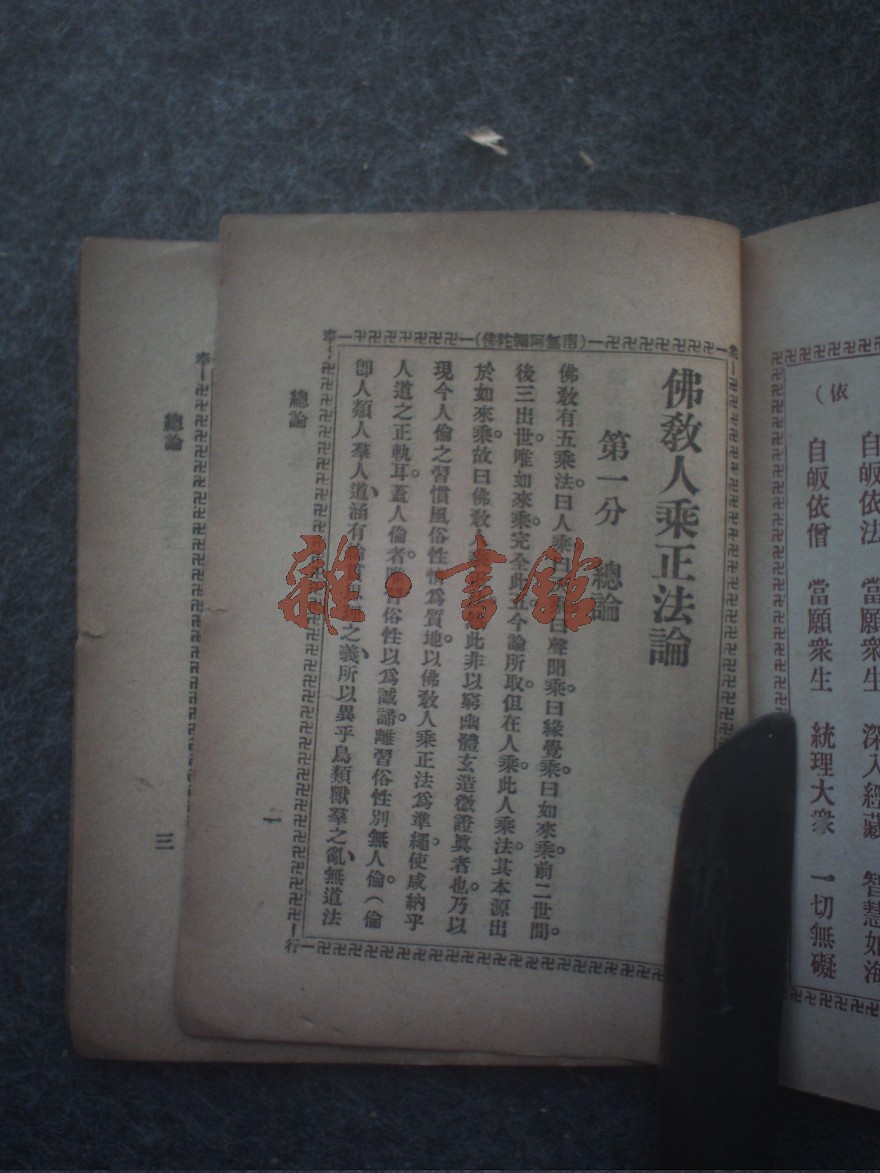 依
自皈依法　當願衆生　深入經藏　智慧如海
自皈依僧　當願衆生　統理大衆　一切無礙
(南無阿彌陀佛)
佛敎人乘正法論
第一分　總論
佛敎有五乘法。曰人乘。曰聲聞乘。曰緣覺乘。曰如來乘。前二世間。
後三出世。唯如來乘完全此五。今論所取。但在人乘。此人乘法。其本源出
於如來乘。故曰佛敎人此非以窮幽體玄造微證眞者也。乃以
現今人倫之習慣風俗性情爲質地。以佛敎人乘正法爲準繩。使咸納乎
人道之正軌耳。蓋人倫者。習俗性以爲誠諦。離習俗性別無人倫(倫
卽人類人羣人道、涵有之義、所以異乎鳥類獸羣之亂、無道法
總論
一
奉
行
總論
三
奉
雜·書館